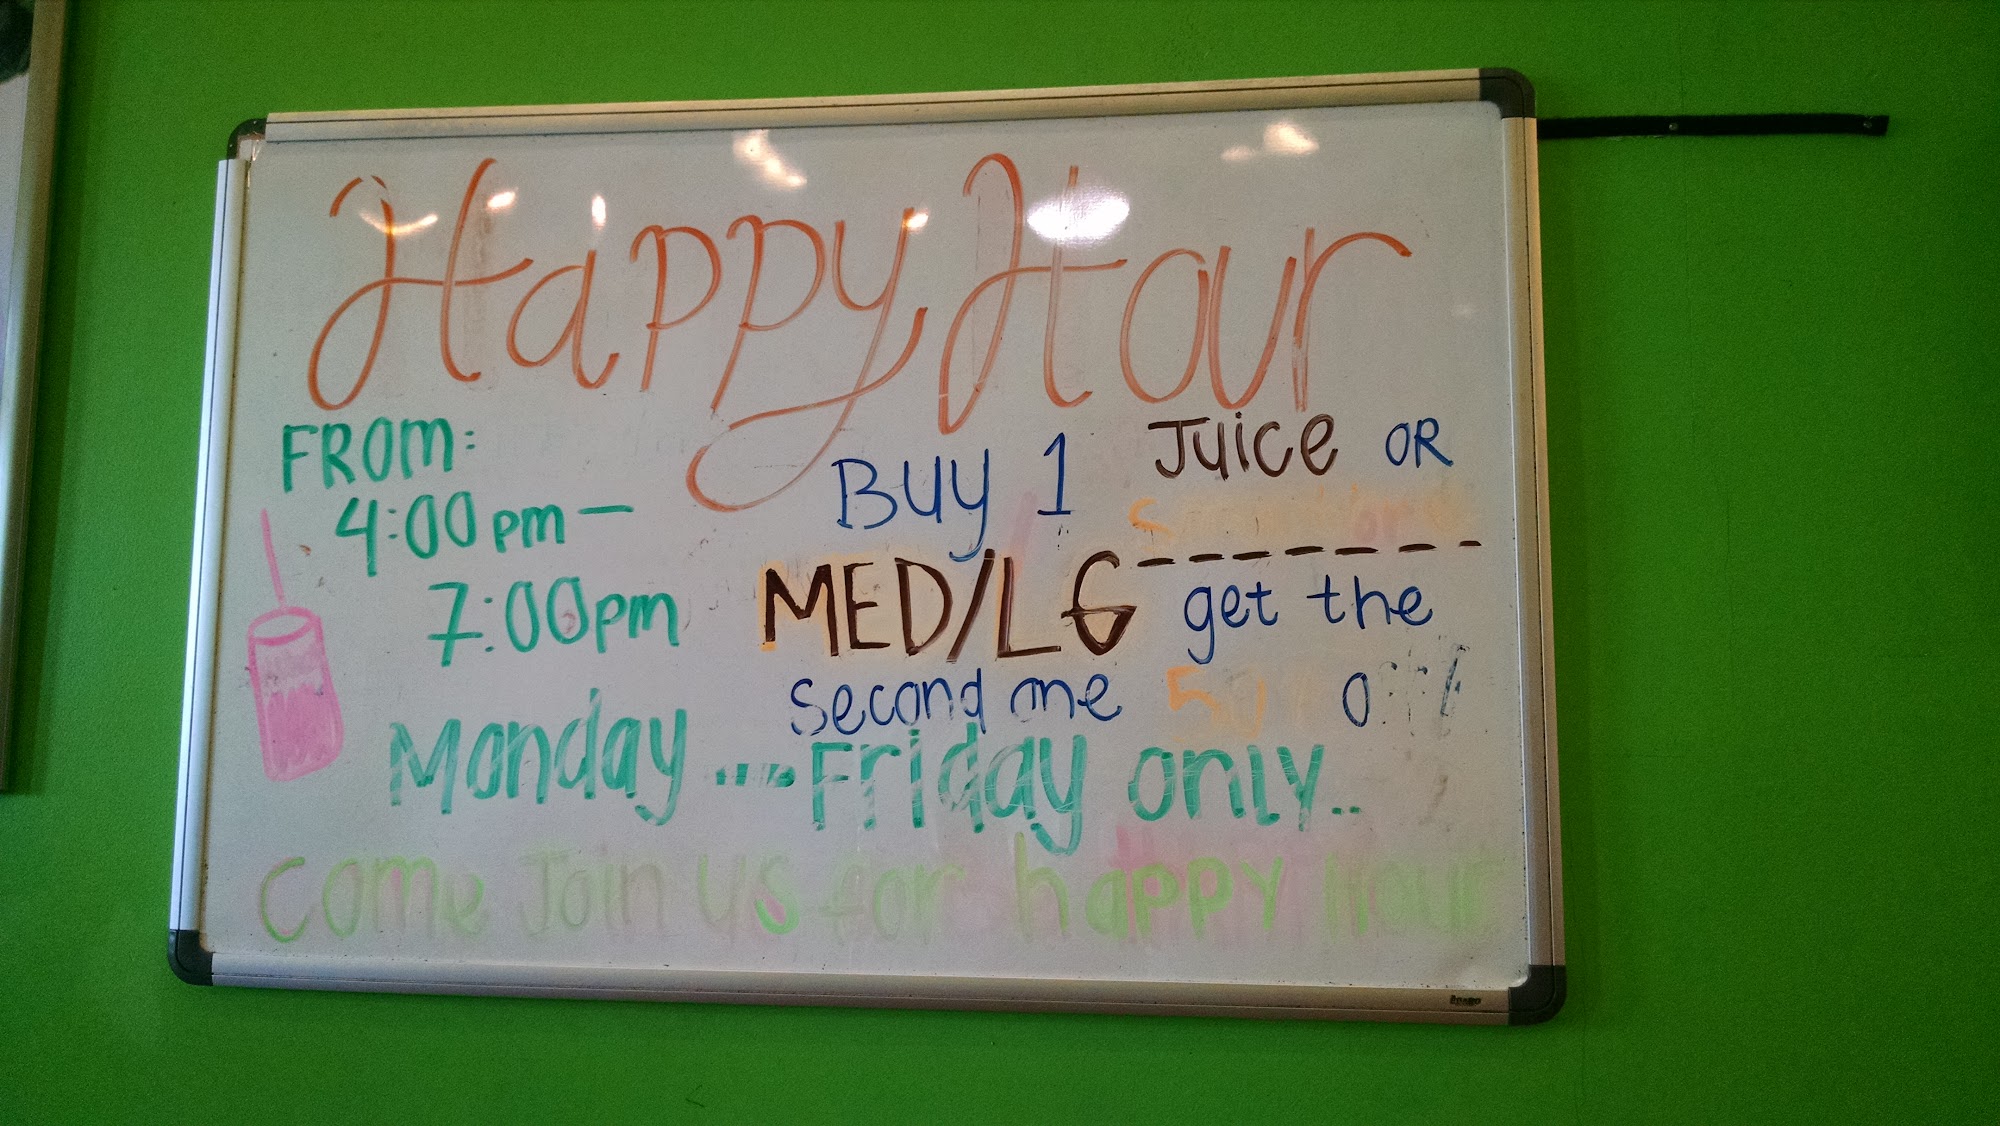 Happy Hour
FROM:
4:00pm –
7:00pm
Buy 1 Juice OR
MED/LG get the
second one 50% off
Monday .... Friday only..
Come Join us for happy Hour